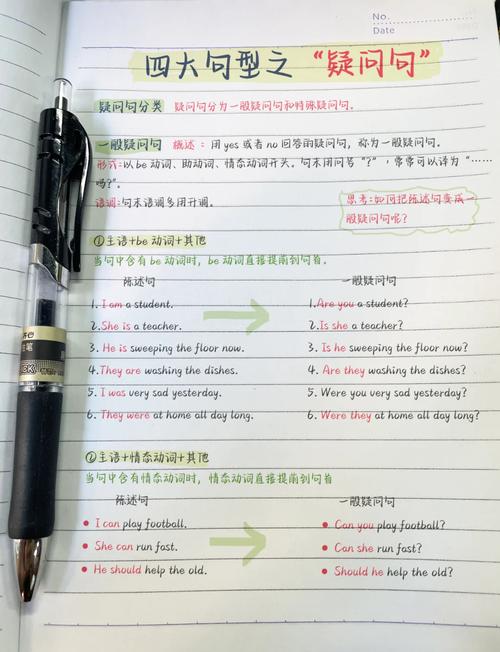 No.
Date
四大句型之 “疑问句”
疑问句分类 疑问句分为一般疑问句和特殊疑问句。
一般疑问句 概述:用yes或者no回答的疑问句,称为一般疑问句。
形式:以be动词、助动词、情态动词开头。句末用问号“?”,常常可以译为“……
吗?”。
语调:句末语调多用升调。
思考:如何把陈述句变成一
般疑问句呢?
①主语+be动词+其他
当句中含有be动词时,be动词直接提前到句首。
陈述句 一般疑问句
1. I am a student. 1.Are you a student?
2.She is a teacher. 2.Is she a teacher?
3. He is sweeping the floor now. 3. Is he sweeping the floor now?
4.They are washing the dishes. 4. Are they washing the dishes?
5. I was very sad yesterday. 5. Were you very sad yesterday?
6. They were at home all day long. 6. Were they at home all day long?
②主语+情态动词+其他
当句中含有情态动词时,情态动词直接提前到句首
陈述句 一般疑问句
• I can play football. • Can you play football?
• She can run fast. • Can she run fast?
• He should help the old. • Should he help the old?